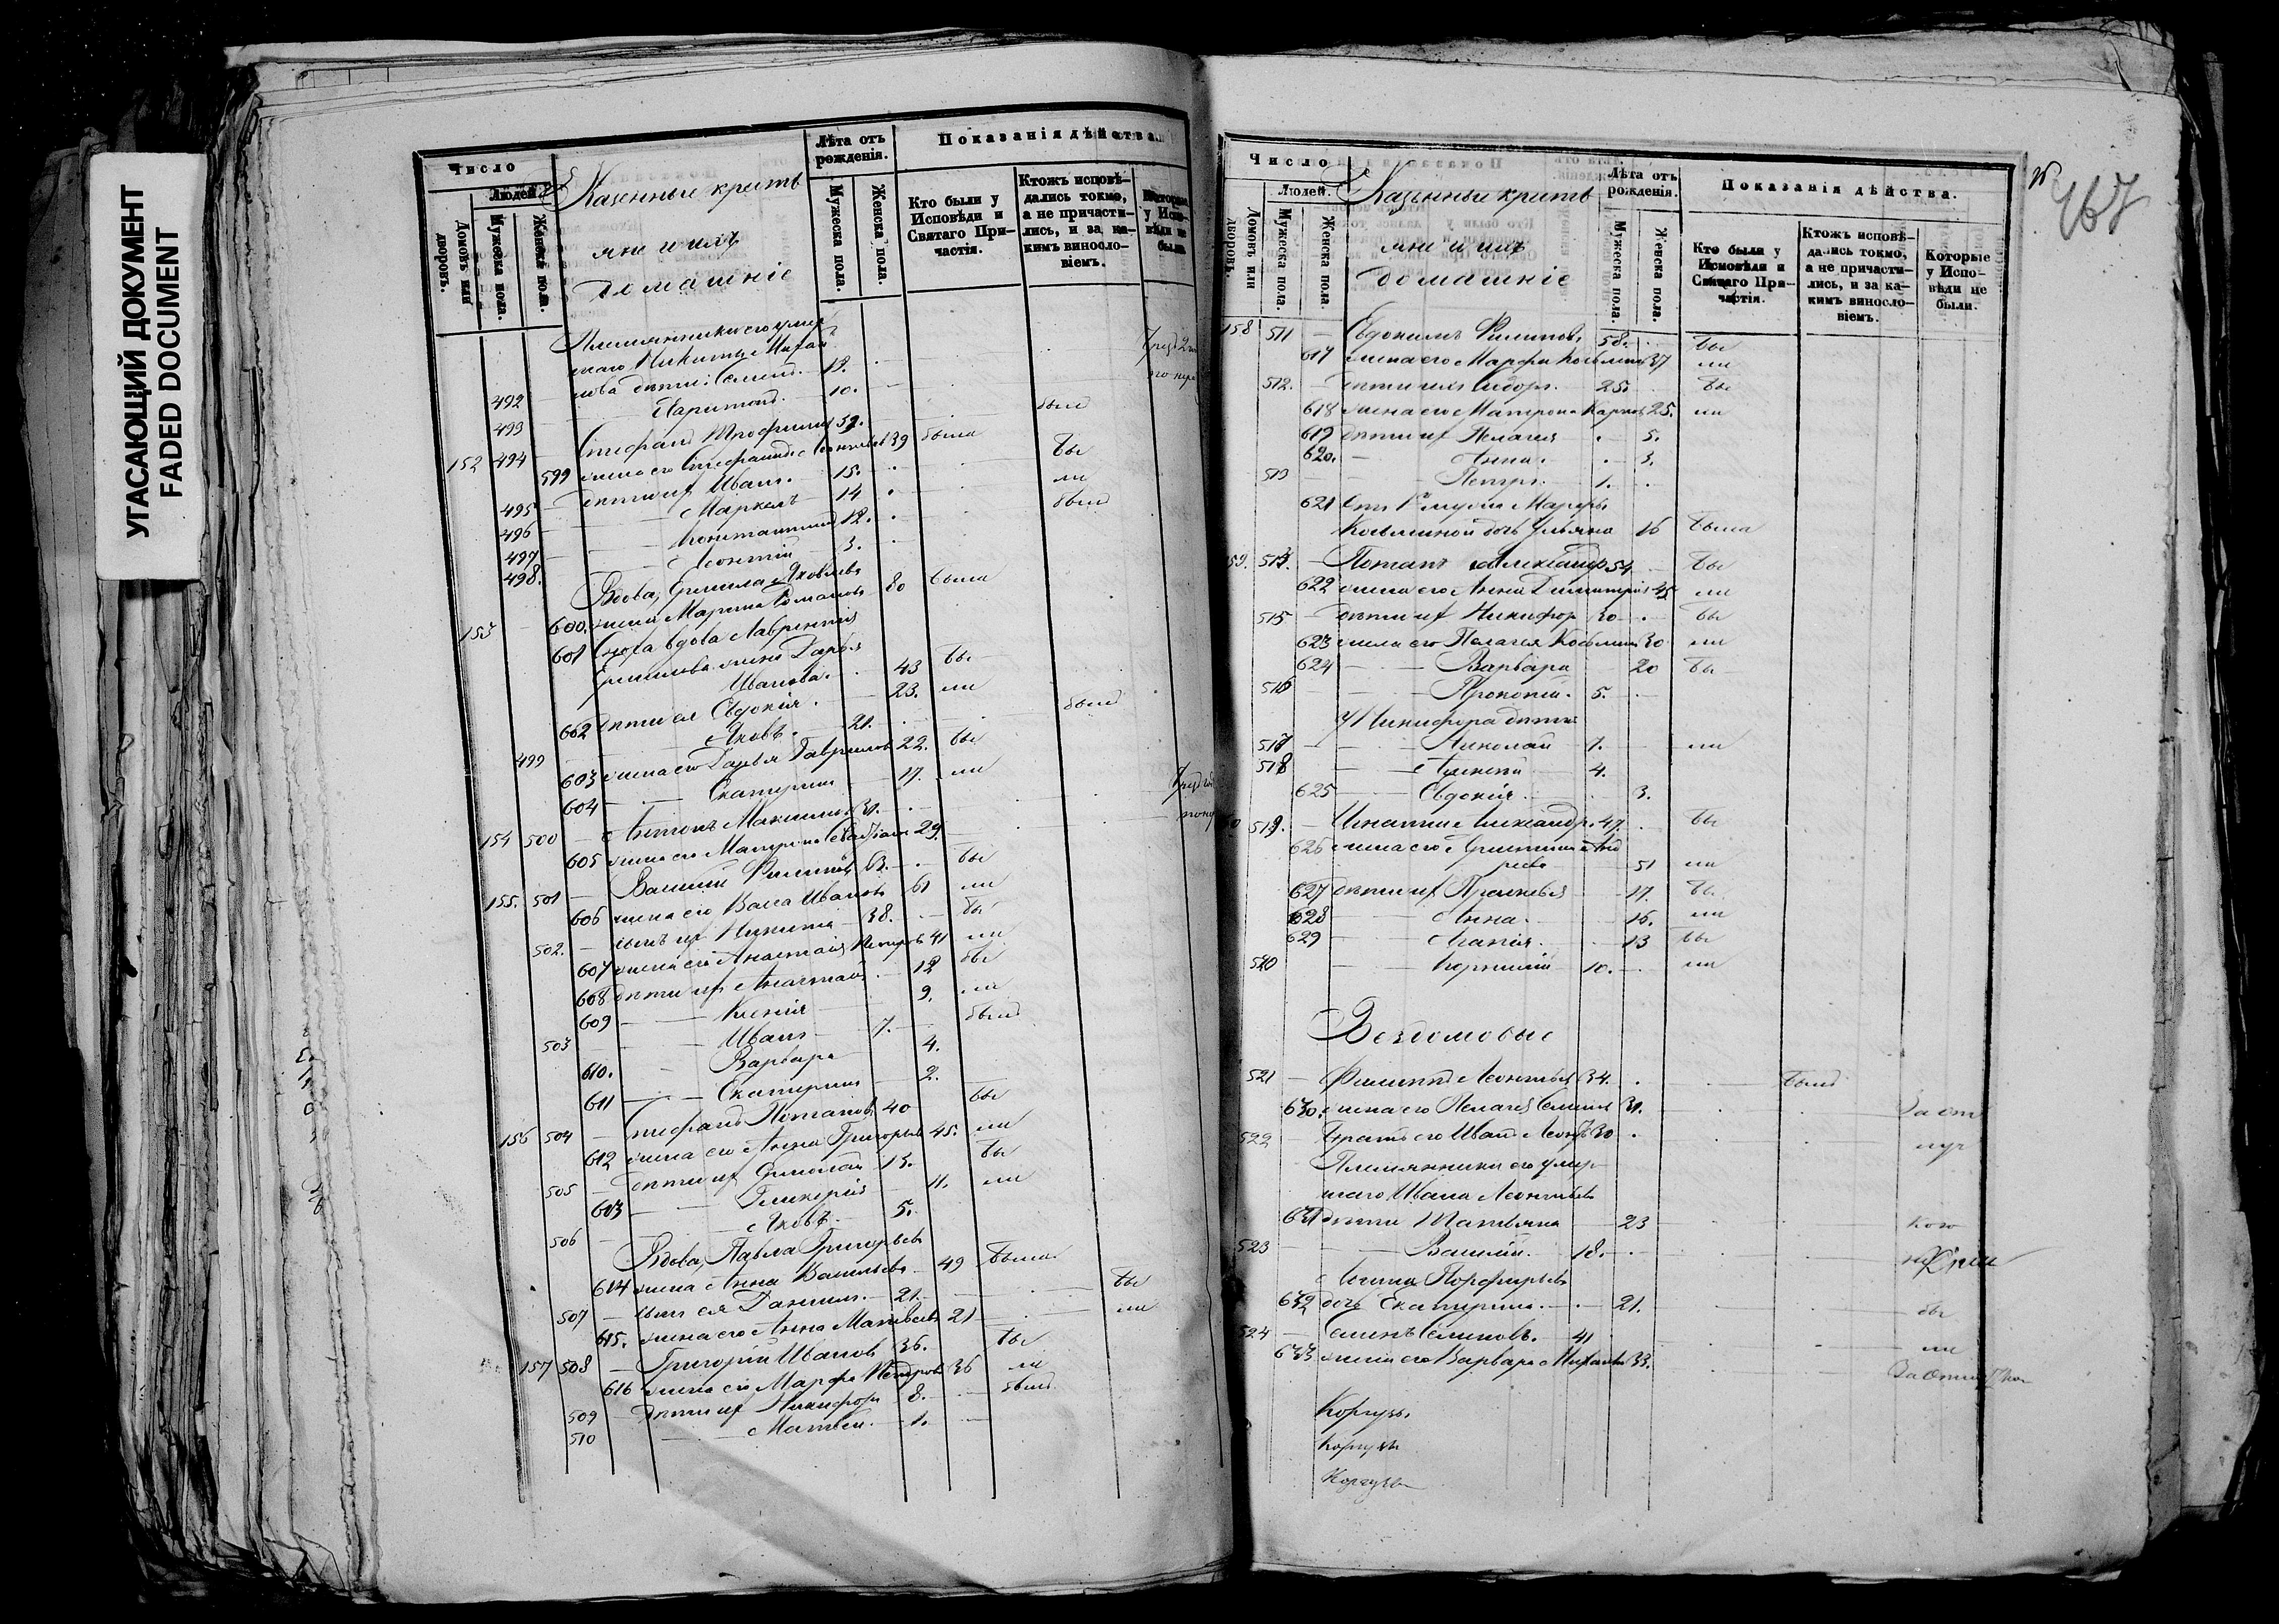 УГАСАЮЩИЙ ДОКУМЕНТ
FADED DOCUMENT
Число
Людей
Домовъ или дворовъ.
Мужеска пола.
Женска пола.
Казенные крестья
яне и ихъ
домашніе
Лѣта отъ рожденія.
Мужеска пола.
Женска пола.
Показанія дѣйства.
Кто были у Исповѣди и Святаго Причастія.
Ктожъ исповѣдались токмо, а не причастились, и за какимъ винословіемъ.
Которые у Исповѣди не были.
Племянники его умер
шаго Никиты Михай
лова дѣти: Семенъ 12.
492
493 Харитонъ 10. былъ
152 494 Стефанъ Трофимовъ
599 жена его Стефанида Леонтьева 39 была
495 дѣти их Иванъ 15. бы
496 Маркелъ 14 ли
497 Константинъ 12. былъ
498. Леонтій 3.
Вдова, Ермила Яковлева
153 600. жена Марина Романова 80 была
601 Сноха вдова Лаврентія
Ермилова жена Дарья
Иванова. 43 бы
602 дѣти ея Евдокія 23. ли
499 Яковъ 21. былъ
603 жена его Дарья Гаврилова 22. бы
604 Екатерина 17. ли
154 500 Антонъ Максимовъ 31.
605 жена его Матрона 29.
155. 501 Василій Филиповъ 63. бы
606 жена его Васса Иванова 61 ли
502. сынъ их Никита 38. бы
607 жена его Анастасія Петрова 41 ли
608 дѣти их Анастасія 12 бы
609 Ксенія 9. ли
503 Иванъ 7. былъ
610. Варвара 4.
611 Екатерина 2.
156 504 Стефанъ Потаповъ 40 бы
612 жена его Анна Григорьева 45. ли
505 дѣти их Ермолай 13. бы
613 Гликерія 11. ли
506 Яковъ 5.
Вдова, Павла Григорьева
614 жена Анна Васильева 49 была
507 сынъ ея Даниилъ 21. бы
615. жена его Анна Матвеева 21 ли
157 508 Григорій Ивановъ 36. бы
616 жена его Марфа Петрова 36 ли
509 дѣти их Никифоръ 8. былъ
510 Матвей 1.
467
Число
Людей.
Домовъ или дворовъ.
Мужеска пола.
Женска пола.
Казенные крестья
яне и ихъ
домашніе
Лѣта отъ рожденія.
Мужеска пола.
Женска пола.
Показанія дѣйства.
Кто были у Исповѣди и Святаго Причастія.
Ктожъ исповѣдались токмо, а не причастились, и за какимъ винословіемъ.
Которые у Исповѣди не были.
158 511 Евдокимъ Филиповъ 58. бы
617 жена его Марфа Козьмина 37 ли
512. дѣти ихъ Сидоръ 25. бы
618 жена его Матрона Карпова 25. ли
619 дѣти их Пелагія 5.
620. Анна 3.
513 Петръ 1.
621 Отъ 1го мужа Марфы
Козьминой дочь Ульяна 16 была
159. 514. Потапъ Александровъ 54 бы
622 жена его Анна Димитріева 45 ли
515 дѣти их Никифоръ 30 бы
623 жена его Пелагія Козьмина 30 ли
624 Варвара 20 бы
516 Прокопій 5.
У Никифора дѣти
517 Николай 7. ли
518 Алексѣй 4.
625 Евдокія 3.
519. Игнатій Александр. 47. бы
626 жена его Христина Анд
реева 51 ли
627 дѣти их Прасковья 17. бы
628 Анна 16. ли
629 Агапія 13 бы
520 Корнилій 10. ли
Бездомовые
521 Филиппъ Леонтьевъ 34. былъ
630. жена его Пелагія Семенова 31. За от
522 братъ его Иванъ Леонт. 30 луч
Племянники его умер
шаго Ивана Леонтьева
631 дѣти Татьяна 23 кою
523 Василій. 18.
Порфирьева
632 дочь Екатерина. 21. бы
524 Семенъ Семеновъ. 41 ли
633 жена его Варвара Михайлова 33.